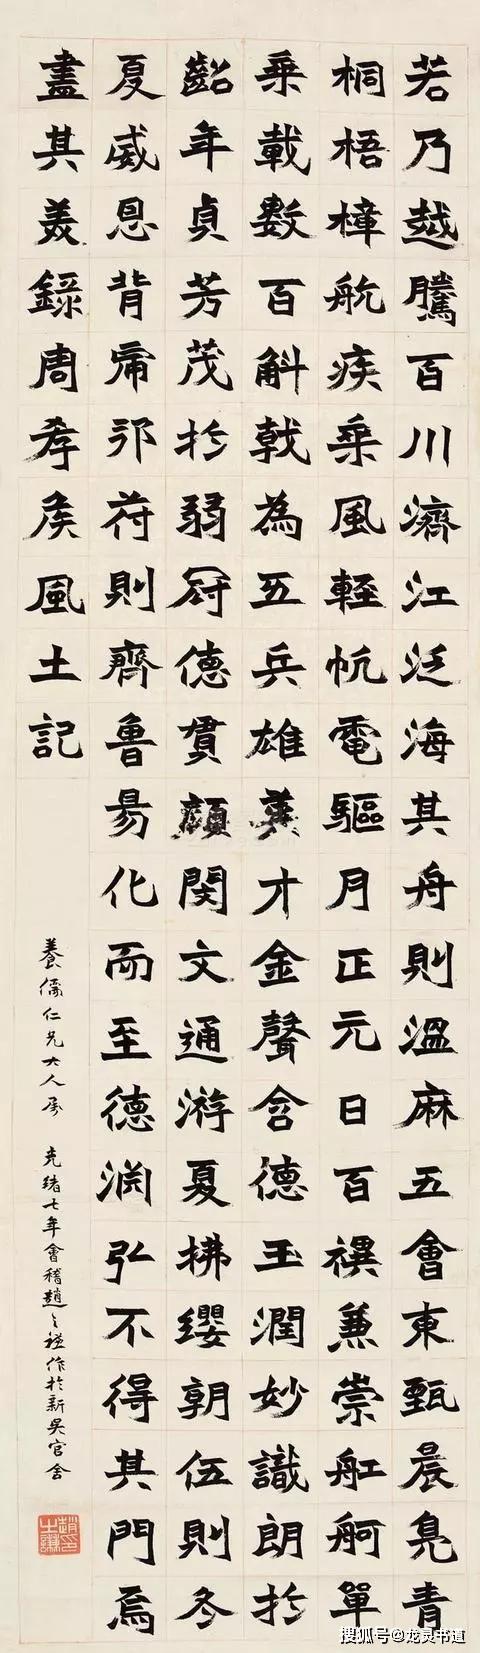 若乃越騰百川濟江泛海其舟則溫麻五會東甄晨鳧青
桐梧樟航疾乘風輕帆電驅月正元日百禩兼崇舡舸單
乘載數百斛戟為五兵雄英才金聲含德玉潤妙識朗於
齠年貞芳茂於弱冠德貫顏閔文通游夏拂纓朝伍則冬
夏威恩背帝邪苻則齊魯易化而至德淵弘不得其門焉
盡其美錄周孝侯風土記
養儒仁兄大人屬 光緒七年會稽趙之謙作於新吳官舍
趙之謙印
搜狐号@龙灵书道